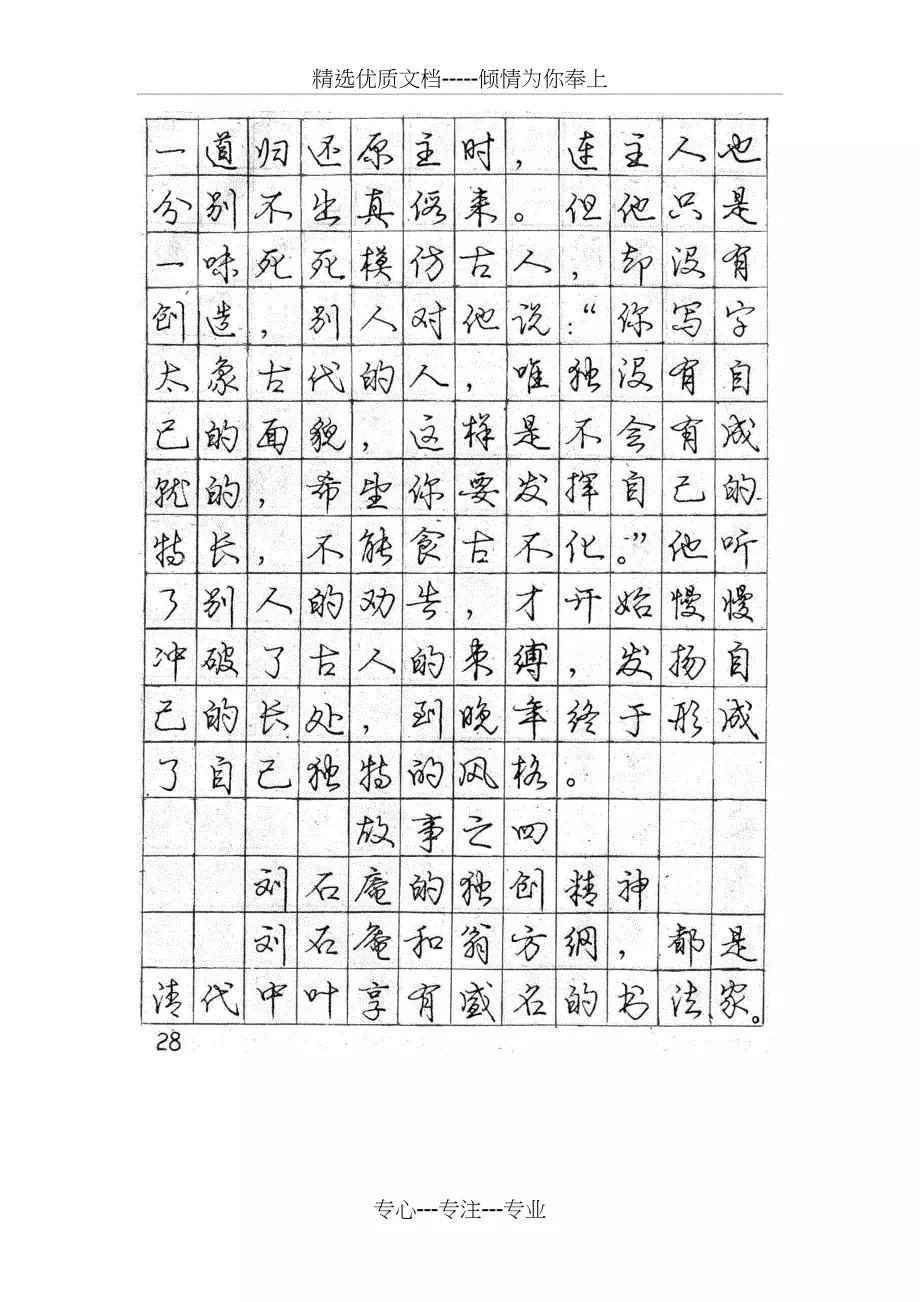 精选优质文档-----倾情为你奉上
一道归还原主时，连主人也
分别不出真俗来。但他只是
一味死死模仿古人，却没有
创造，别人对他说：“你写字
太象古代的人，唯独没有自
己的面貌，这样是不会有成
就的，希望你要发挥自己的
特长，不能食古不化。”他听
了别人的劝告，才开始慢慢
冲破了古人的束缚，发扬自
己的长处，到晚年终于形成
了自己独特的风格。
故事之四
刘石庵的独创精神
刘石庵和翁方纲，都是
清代中叶享有盛名的书法家。
28
专心---专注---专业